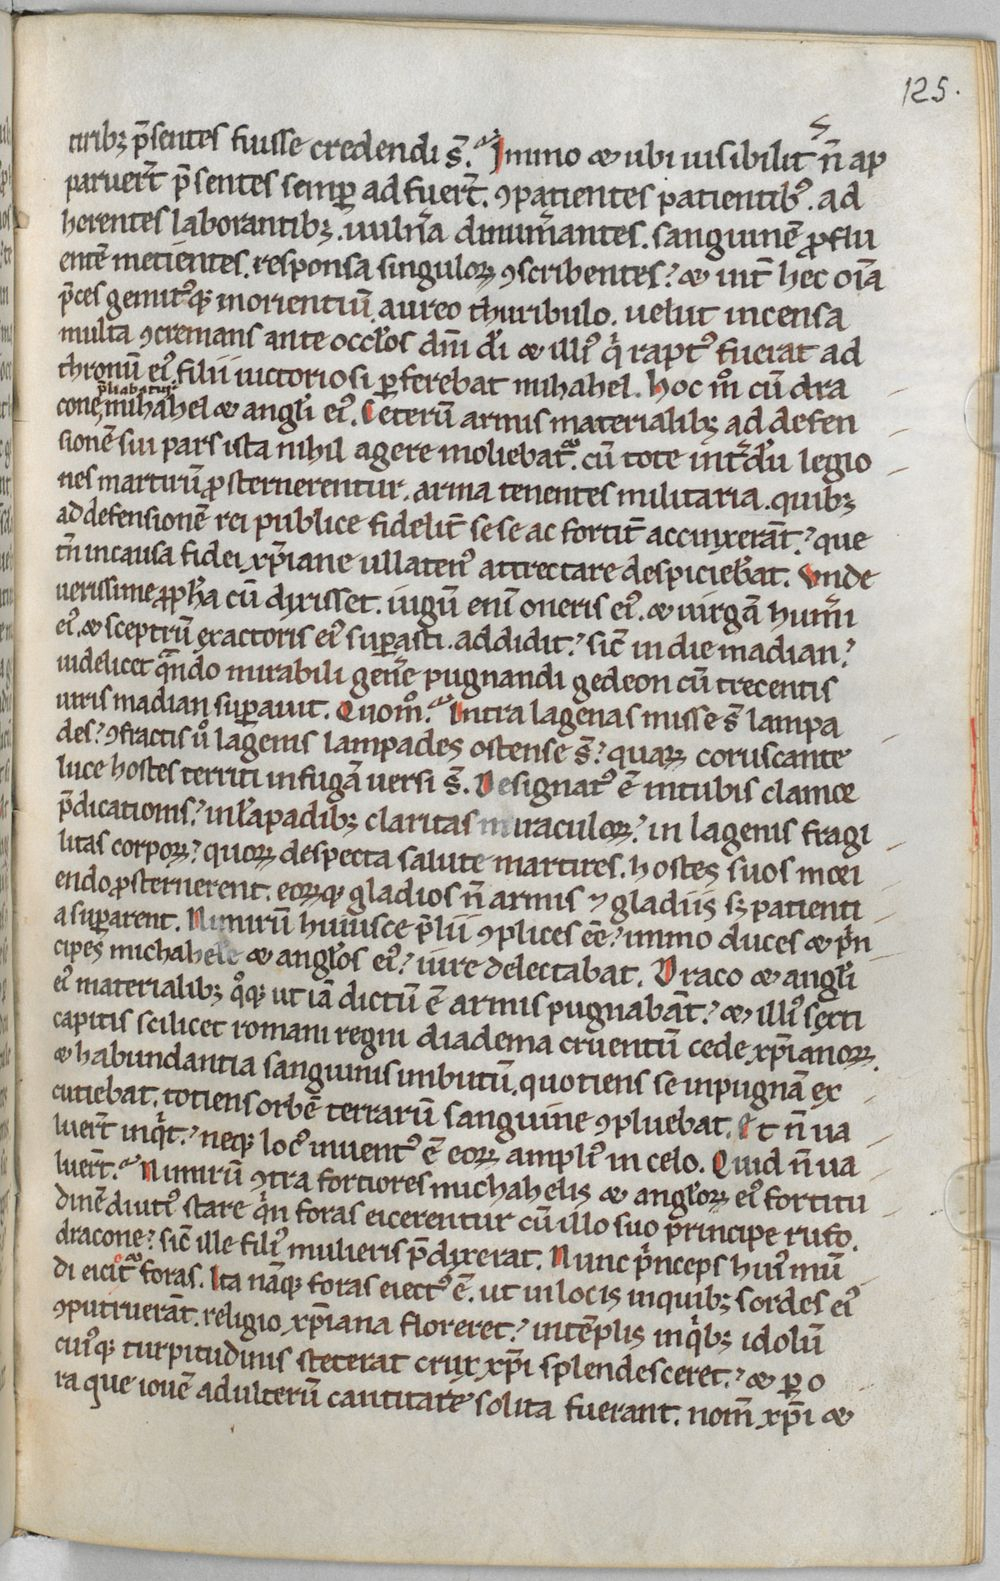 125.
tirib; p̄sentes fuisse credendi s̄. Immo & ubi uisibilit̄ n̄ ap
paruer̄t p̄sentes semp̱ ad fuer̄t. ꝯpatientes patientibꝰ. ad
herentes laborantib;. uulna̾ dinum̾antes. sanguinē ꝓflu
entē metientes. responsa singuloꝝ ꝯscribentes? & int̄ hec oīa
p̄ces gemitꝰq; morientiū. aureo thuribulo. uelut incensa
multa ꝯcremans ante occl̓os dn̄i dī & illiꝰ qͥ raptꝰ fuerat ad
thronū eiꝰ. filii uictoriosi ꝑferebat mihahel. Hoc m̊ cū dra
p̄liabatur
cone, mihahel & angl̓i eiꝰ. Ceterū armis materialib; ad defen
sionē sui pars ista nihil agere moliebat᷑. cū tote int̾dū legio
nes marturū ꝓsternerentur. arma tenentes militaria. quib;
ad defensionē rei publice fidelit̄ sese ac fortit̄ accinxerāt? que
tn̄ in causa fidei xp̄iane ullatenꝰ attrectare despiciebāt. Vnde
uerissime ꝓph̄a cū dixisset. iugū enī oneris eiꝰ. & uirgā hum̾i
eiꝰ. & sceptrū exactoris eiꝰ suꝑasti. addidit? sic̄ in die madian?
uidelicet qͣndo mirabili gen̾e pugnandi gedeon cū trecentis
uiris madian suꝑauit. Quom̊. Intra lagenas misse s̄ lampa
des? ꝯfractis u̾o lagenis lampades ostense s̄? quaꝝ coruscante
luce hostes territi in fugā uersi s̄. Designatꝰ ē in tubis clamor
p̄dicationis? in lāpadib; claritas miraculoꝝ? in lagenis fragi
litas corpoꝝ? quoꝝ despecta salute martires. hostes suos mori
endo ꝓsternerent. eoꝝq; gladios n̄ armis ⁊ gladiis s; patienti
a suꝑarent. Nimirū huiusce p̄lii ꝯplices eē? immo duces & pͥn
cipes michahele & angl̓os eiꝰ? iure delectabat. Draco & angl̓i
eiꝰ materialib; qͦq; ut iā dictū ē armis pugnabāt? & illiꝰ septi
capitis scilicet romani regni diadema cruentū cede xp̄ianoꝝ.
& habundantia sanguinis imbutū. quotiens se in pugnā ex
cutiebat. totiens orbē terrarū sanguine ꝯpluebat. Et n̄ ua
luer̄t inqͥt? neq; locꝰ inuentꝰ ē eoꝝ ampliꝰ in celo. Quid n̄ ua
luer̄t. Nimirū ꝯtra fortiores michahelis & angl̓oꝝ eiꝰ fortitu
dinē diutiꝰ stare qͥn foras eicerentur cū illo suo principe rufo
dracone? sic̄ ille filiꝰ mulieris p̄dixerat. Nunc pͥnceps huiꝰ mū
di eicit᷑ foras. Ita nāq; foras eiectꝰ ē. ut in locis in quib; sordes eiꝰ
ꝯputruerāt. religio xp̄iana floreret? in tēplis in qͥb; idolū
cuiꝰq; turpitudinis steterat crux xp̄i splendesceret? & ꝑ o
ra que iouē adulterū cantitare solita fuerant. nom̄ xp̄i &